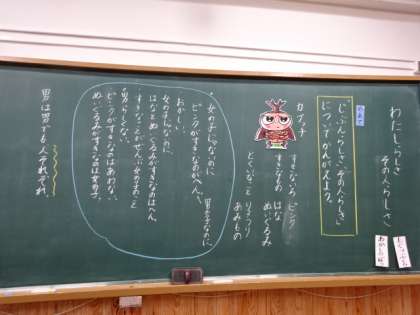 わたしらしさ
その人らしさ
めあて
「じぶんらしさ」「その人らしさ」
についてかんがえよう。
カブッチ
すきないろ ピンク
すきなもの はな
ぬいぐるみ
とくいなこと りょうり
あみもの
・女の子じゃないのに
ピンクがすきなのがへん。
男の子なのに
おかしい。
女の子じゃないのに
はなとぬいぐるみがすきなのはへん
すきなことがぜんぶ女の子のこと
男らしくない。
ピンクがすきなのはあわない。
ぬいぐるみがすきなのは女の子。
男は男でも人それぞれ。